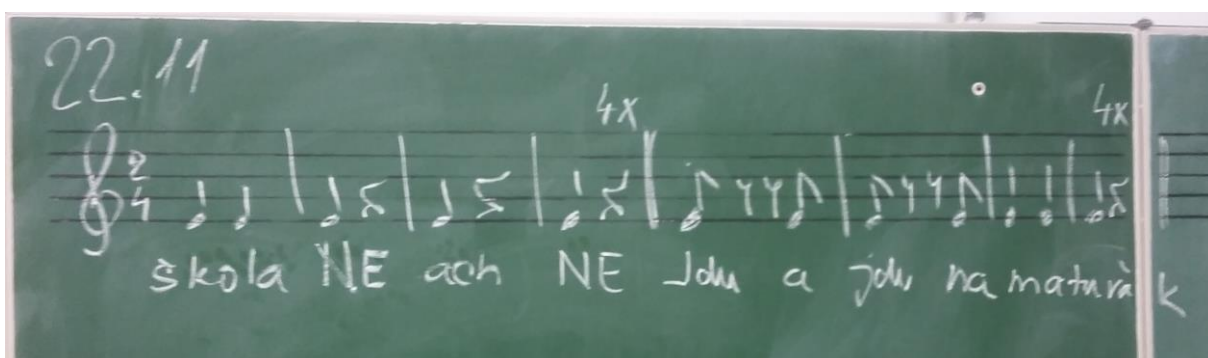 22.11
4x 4x
2
4
škola NE ach NE Jdu a jdu na maturák